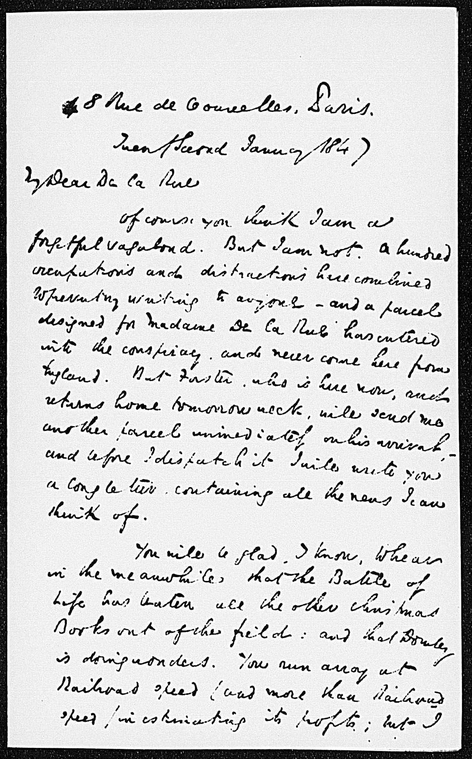 48 Rue de Courcelles, Paris.
Twenty Second January 1847
My Dear De la Rue
Of course you think I am a
forgetful vagabond. But I am not. A hundred
occupations and distractions have combined
to prevent my writing to anyone – and a parcel
designed for Madame De la Rue has entered
into the conspiracy, and never come here from
England. But Forster, who is here now, and
returns home tomorrow week, will send me
another parcel immediately on his arrival, –
and before I dispatch it I will write you
a long letter, containing all the news I can
think of.
You will be glad, I know, to hear
in the meanwhile, that the Battle of
Life has beaten all the other Christmas
Books out of the field: and that Dombey
is doing wonders. You run away at
Railroad speed (and more than Railroad
speed) in estimating its profits; but I